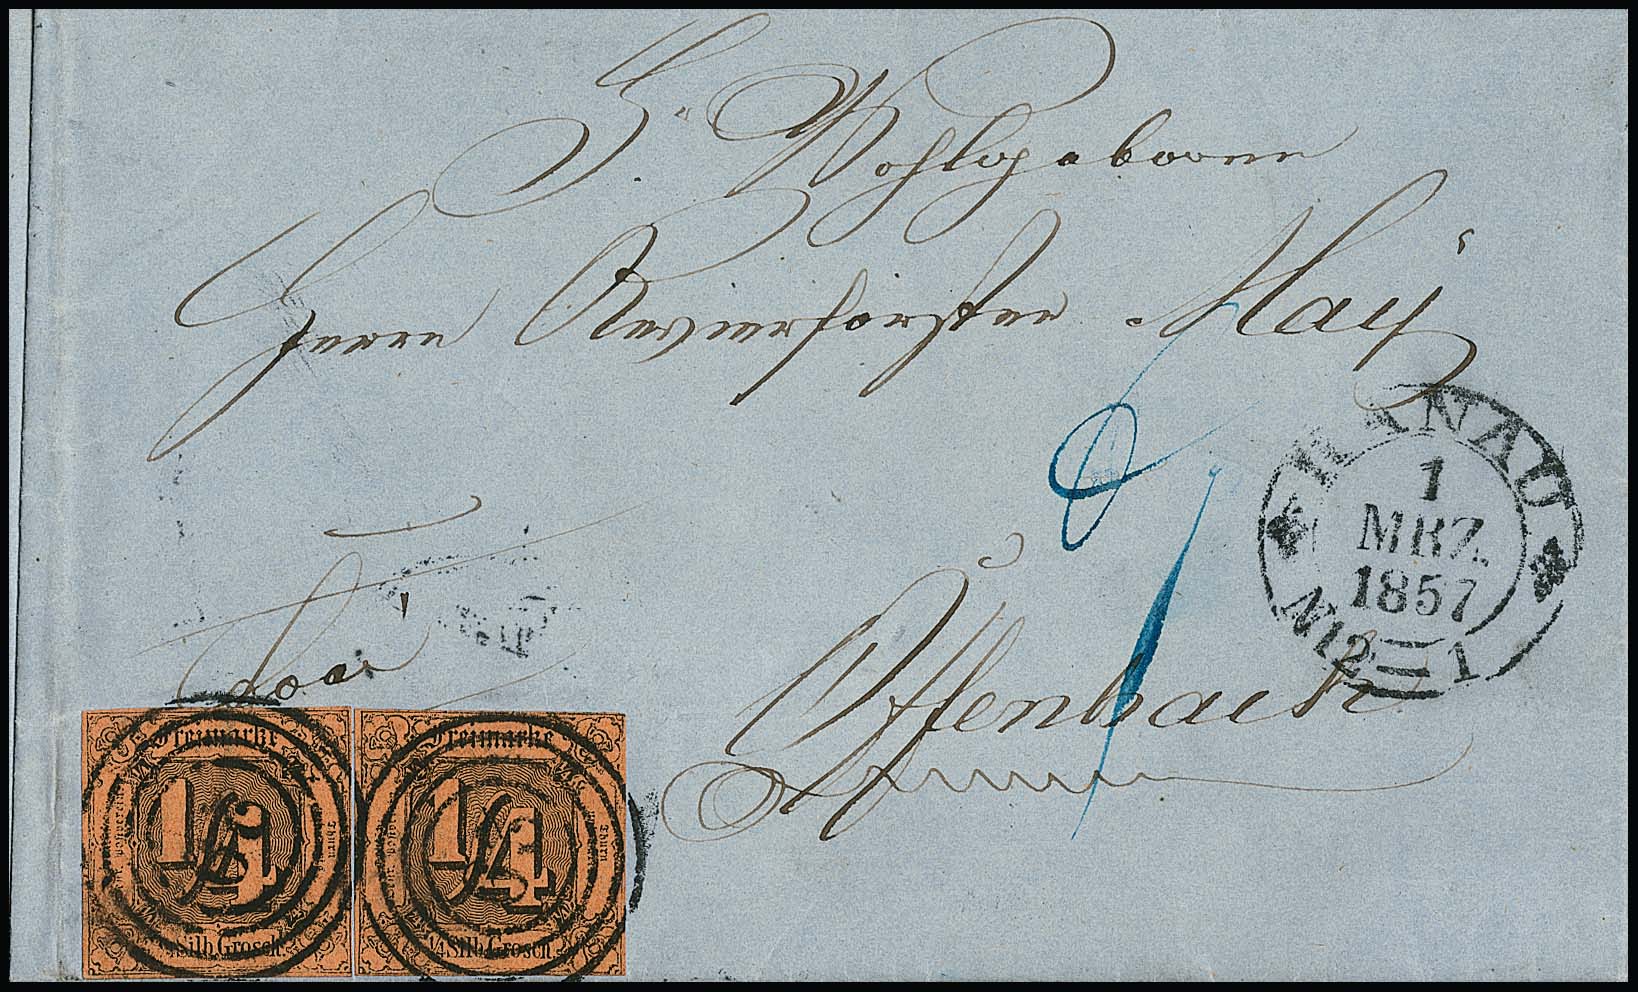 Sr. Wohlgeboren
Herrn Revierförster May
HANAU
1
MRZ.
1857
N12-1
Offenbach
Freimarke
1/4
Thurn
1/4 Silb. Grosch
Freimarke
1/4
Thurn
1/4 Silb. Grosch